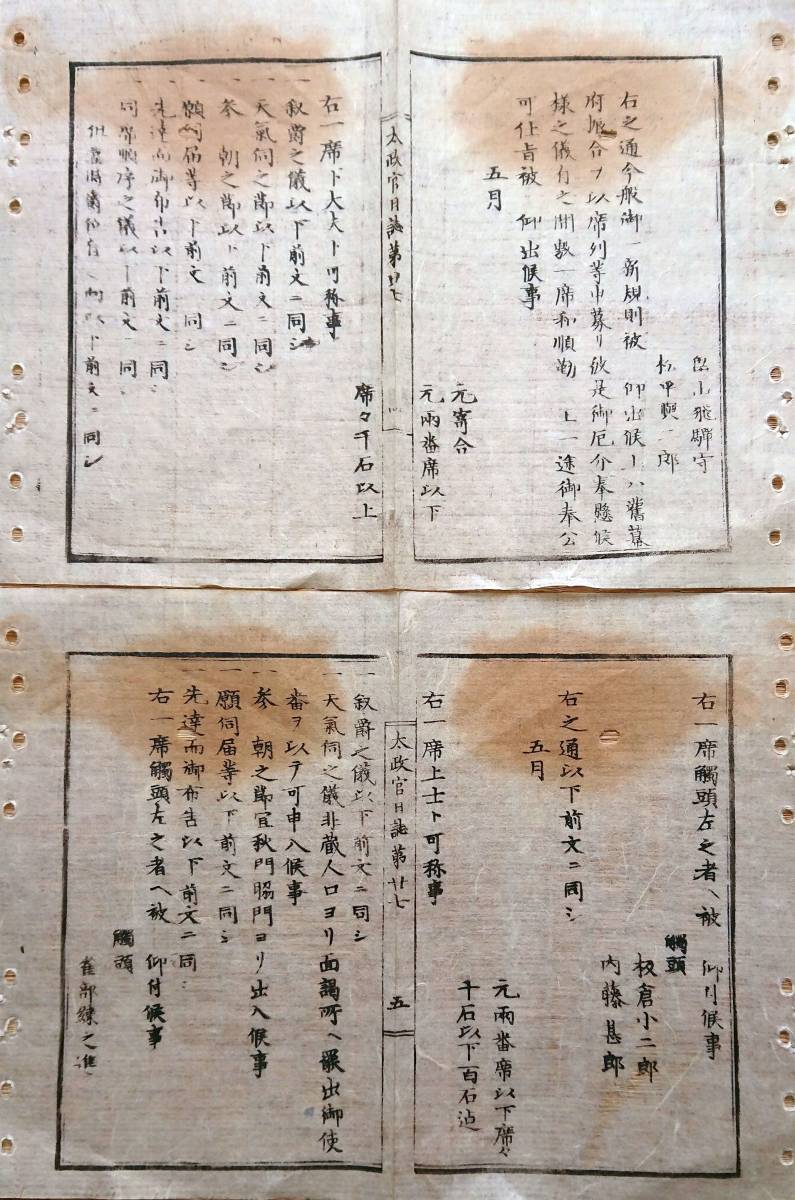 畠山飛騨守
右之通今般御一新規則被 仰出候ニハ舊幕
府場合ヲ以席列等申募リ彼是御厄介奉懸候
様之儀有之間敷一席和順勤 上一途御奉公
可仕旨被 仰出候事
五月
元寄合
元兩番席以下
席々千石以上
太政官日誌第廿七
四
右一席下大夫ト可称事
一 叙爵之儀以下前文ニ同シ
一 天氣伺之節以下前文ニ同シ
一 参 朝之節以下前文ニ同シ
一 願伺届等以下前文ニ同シ
一 先達而御布告以下前文ニ同シ
一 同席順序之儀以下前文ニ同シ
以下前文ニ同シ
右一席觸頭左之者ヘ被 仰付候事
觸頭
板倉小二郎
内藤甚郎
右之通以下前文ニ同シ
五月
元兩番席以下席々
千石以下百石迠
右一席上士ト可称事
太政官日誌第廿七
五
一 叙爵之儀以下前文ニ同シ
一 天氣伺之儀非蔵人口ヨリ面謁所ヘ罷出御使
番ヲ以テ可申入候事
一 参 朝之節宜秋門脇門ヨリ出入候事
一 願伺届等以下前文ニ同シ
一 先達而御布告以下前文ニ同シ
右一席觸頭左之者ヘ被 仰付候事
觸頭